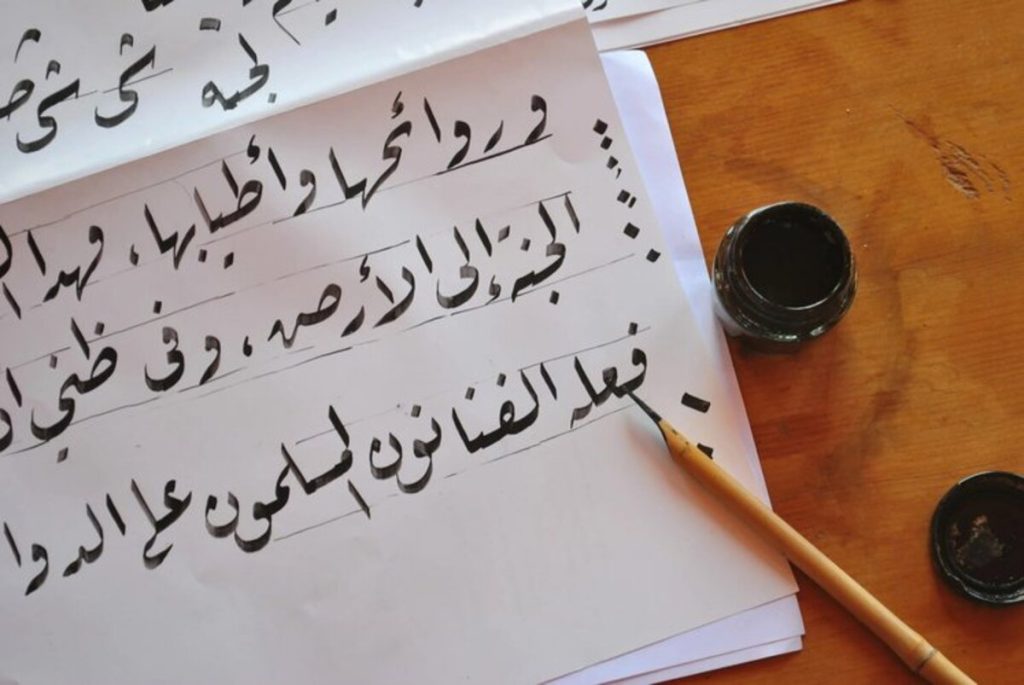 لجنة شى شى
وروائحها وأطيابها، فهذا
الجنة إلى الأرض، وفي ظني
فعله الفنانون المسلمون على الدوا